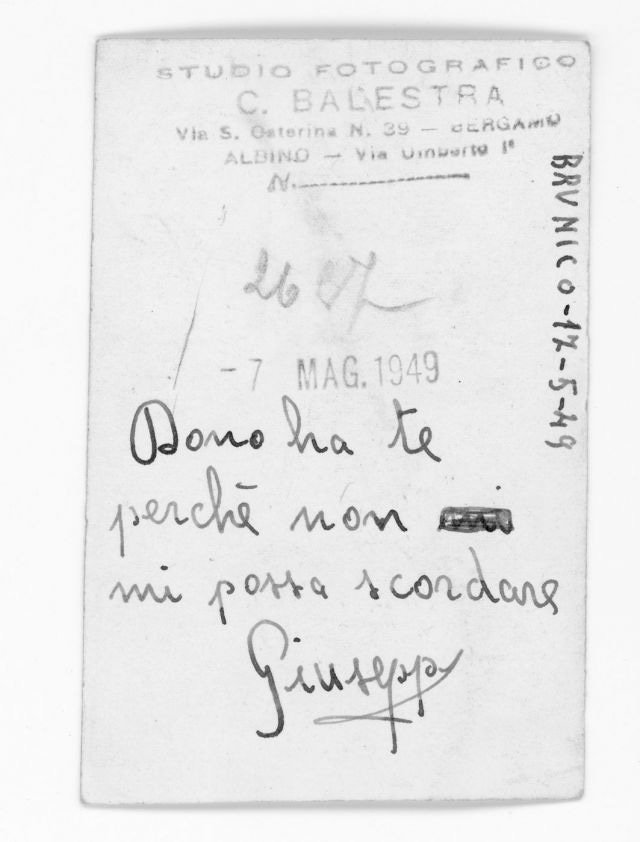 STUDIO FOTOGRAFICO
C. BALESTRA
Via S. Caterina N. 39 — BERGAMO
ALBINO — Via Umberto I°
N.
26
- 7 MAG. 1949
Dono ha te
perchè non
mi possa scordare
Giusepp
BRUNICO-17-5-49